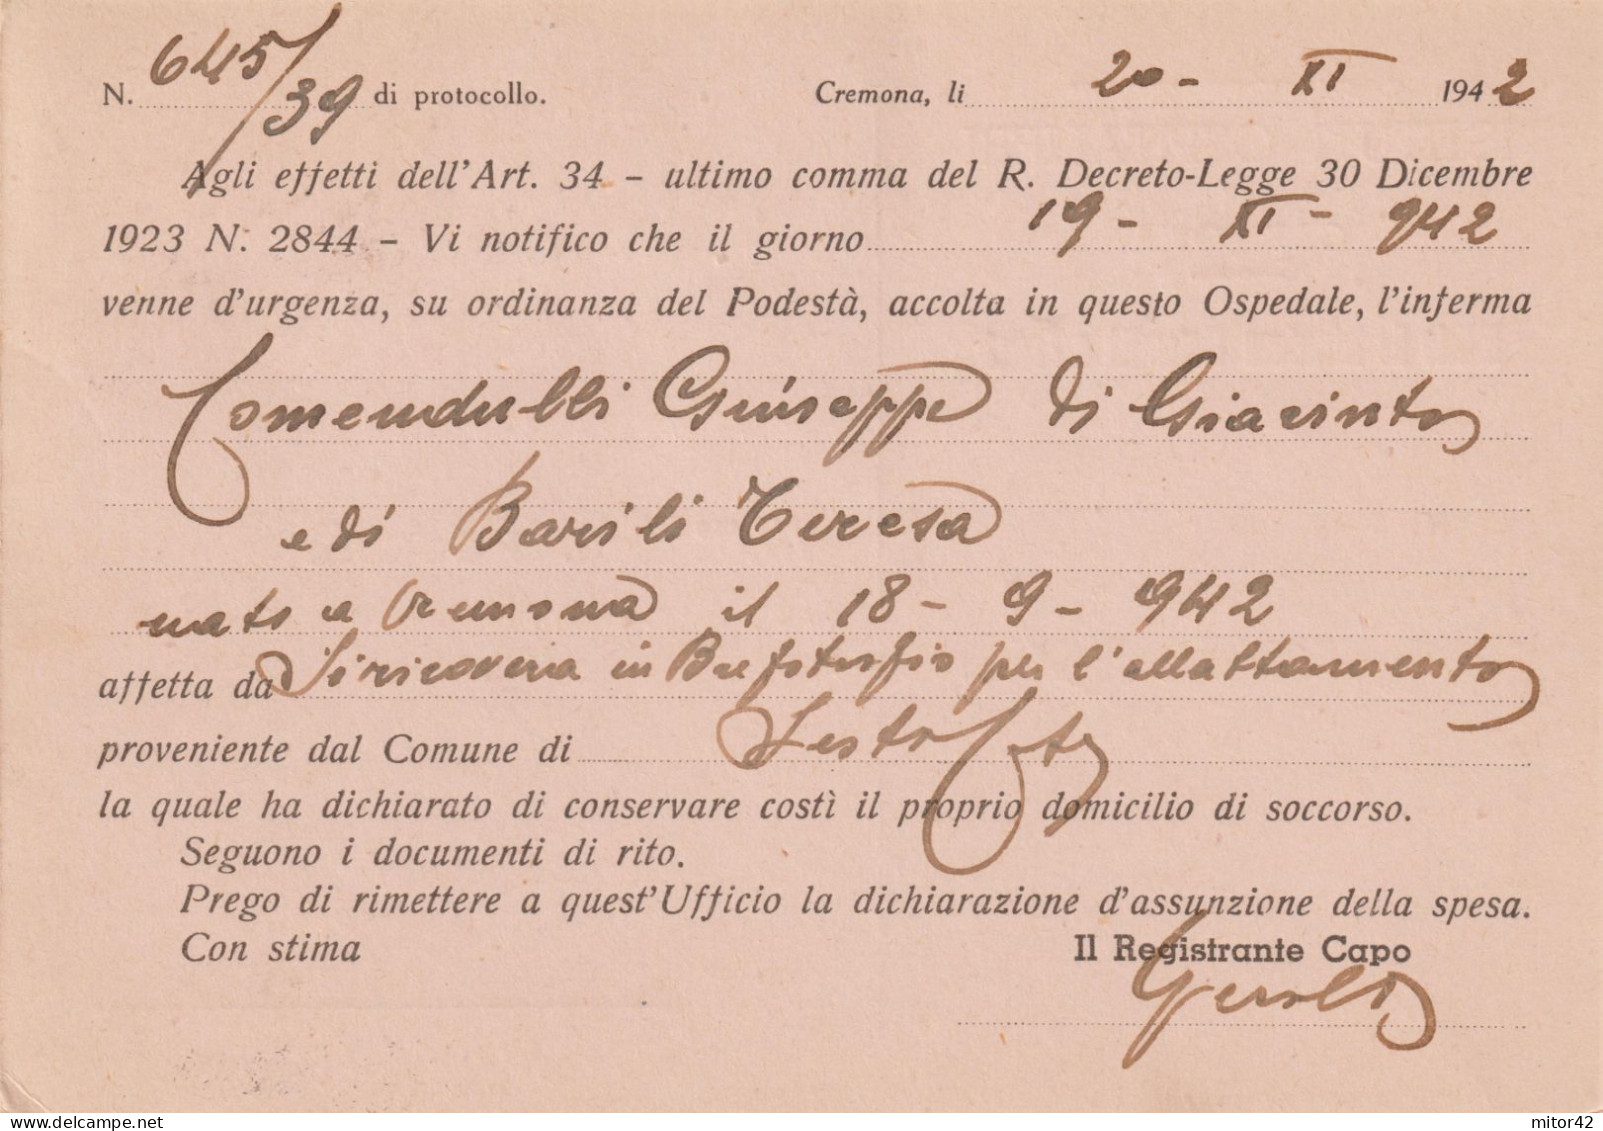 N. 645/39 di protocollo. Cremona, li 20 - XI 1942
Agli effetti dell'Art. 34 - ultimo comma del R. Decreto-Legge 30 Dicembre
1923 N. 2844 - Vi notifico che il giorno 19 - XI - 942
venne d'urgenza, su ordinanza del Podestà, accolta in questo Ospedale, l'inferma
Comendulli Giuseppe di Giacinto
e di Barili Teresa
nato a Cremona il 18 - 9 - 942
affetta da Si ricovera in Brefotrofio per l'allattamento
proveniente dal Comune di
la quale ha dichiarato di conservare costì il proprio domicilio di soccorso.
Seguono i documenti di rito.
Prego di rimettere a quest'Ufficio la dichiarazione d'assunzione della spesa.
Con stima Il Registrante Capo
mitor42